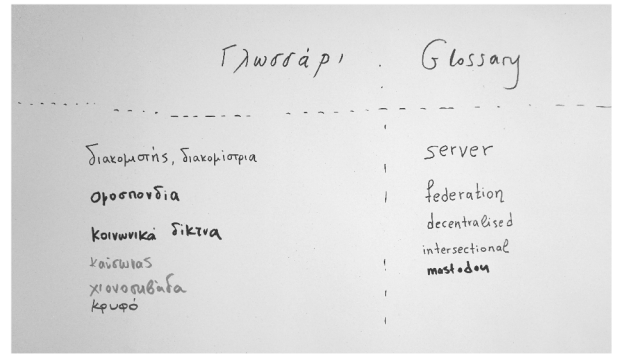 Γλωσσάρι . Glossary
διακομιστής, διακομίστρια
ομοσπονδία
κοινωνικά δίκτυα
καύσωνας
χιονοστιβάδα
κρυφό
server
federation
decentralised
intersectional
mastodon